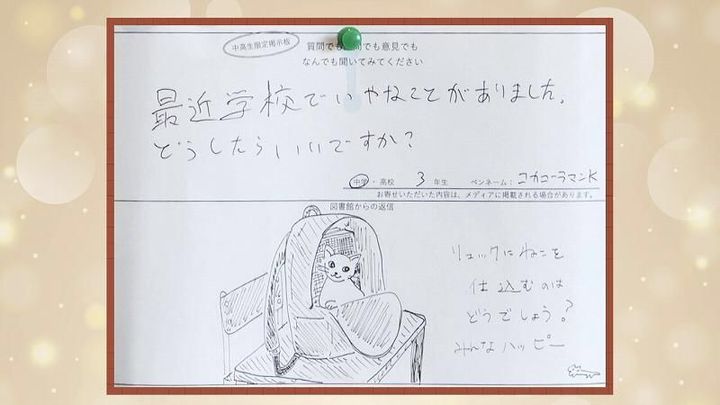 中高生限定掲示板
質問でも 問でも意見でも
なんでも聞いてみてください
最近学校でいやなことがありました。
どうしたらいいですか?
中学・高校 3 年生 ペンネーム：コカコーラマンK
お寄せいただいた内容は、メディアに掲載される場合があります。
図書館からの返信
リュックにねこを
仕込むのは
どうでしょう?
みんなハッピー